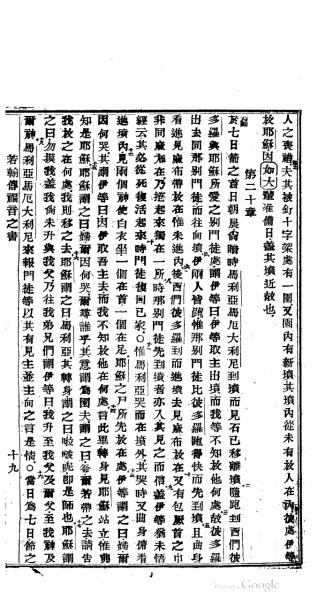 人之喪禮夫其被釘十字架處有一園又園內有新墳其墳內從未有放人在內彼處伊等
放耶穌因如大備日蓋其墳近故也
第二十章
於七日節之首日朝晨尙暗時馬利亞馬厄大利尼到墳而見石已移離墳隨跑到西們彼
多羅與耶穌所愛之別門徒處謂伊等曰伊等取主出墳而我等不知他何處放彼多羅
出去同那別門徒而往向墳伊兩人皆跑惟那別門徒比彼多羅跑得快而先到墳且曲身
看進見麻布帶放在惟未進內後西們彼多羅到而進去見麻布放在又有包厥首之巾
非同麻布乃在捲起來獨在一所時那別門徒先到墳者亦入其見之而信蓋伊等猶未悟
經云其必從死復活起來時門徒復回己家○惟馬利亞哭而在墳外其哭時又曲身俯看
進墳內見兩個神使白衣坐一個在首一個在足耶穌之尸所先放在處伊等謂之曰婦爾
因何哭其謂伊等曰因伊取吾主去而我不知放他在何處言此畢轉身見耶穌站立惟弗
知是耶穌耶穌謂之曰婦爾因何哭爾尋誰乎其意謂爲園夫謂之曰爺爾若帶之去請告
我放之在何處我則移之去耶穌謂之曰馬利亞其轉身謂之曰啦呢卽是師也耶穌謂
之曰勿摸我蓋我尙未升與我父乃往我弟兄們謂伊等曰我升至我父及爾父至我神及
爾神馬利亞馬厄大利尼來報門徒等以其有見主並主向之言是情○當日爲七日節之
若翰傳福音之書 十九
Digitized by Google